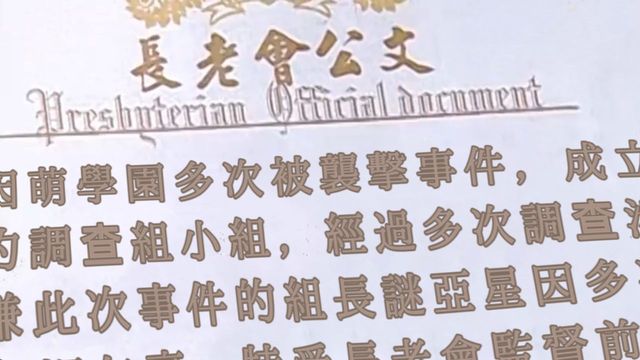 長老會公文
Presbyterian Official document
因萌學園多次被襲擊事件，成立
的調查組小組，經過多次調查
嫌此次事件的組長謎亞星因多
長老會監督前